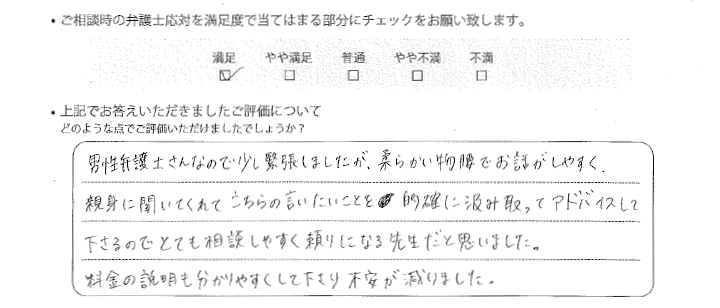 ・ご相談時の弁護士応対を満足度で当てはまる部分にチェックをお願い致します。
満足 やや満足 普通 やや不満 不満
☑ ☐ ☐ ☐ ☐
・上記でお答えいただきましたご評価について
どのような点でご評価いただけましたでしょうか？
男性弁護士さんなので少し緊張しましたが、柔らかい物腰でお話がしやすく、
親身に聞いてくれてこちらの言いたいことを 的確に汲み取ってアドバイスして
下さるのでとても相談しやすく頼りになる先生だと思いました。
料金の説明も分かりやすくして下さり不安が減りました。